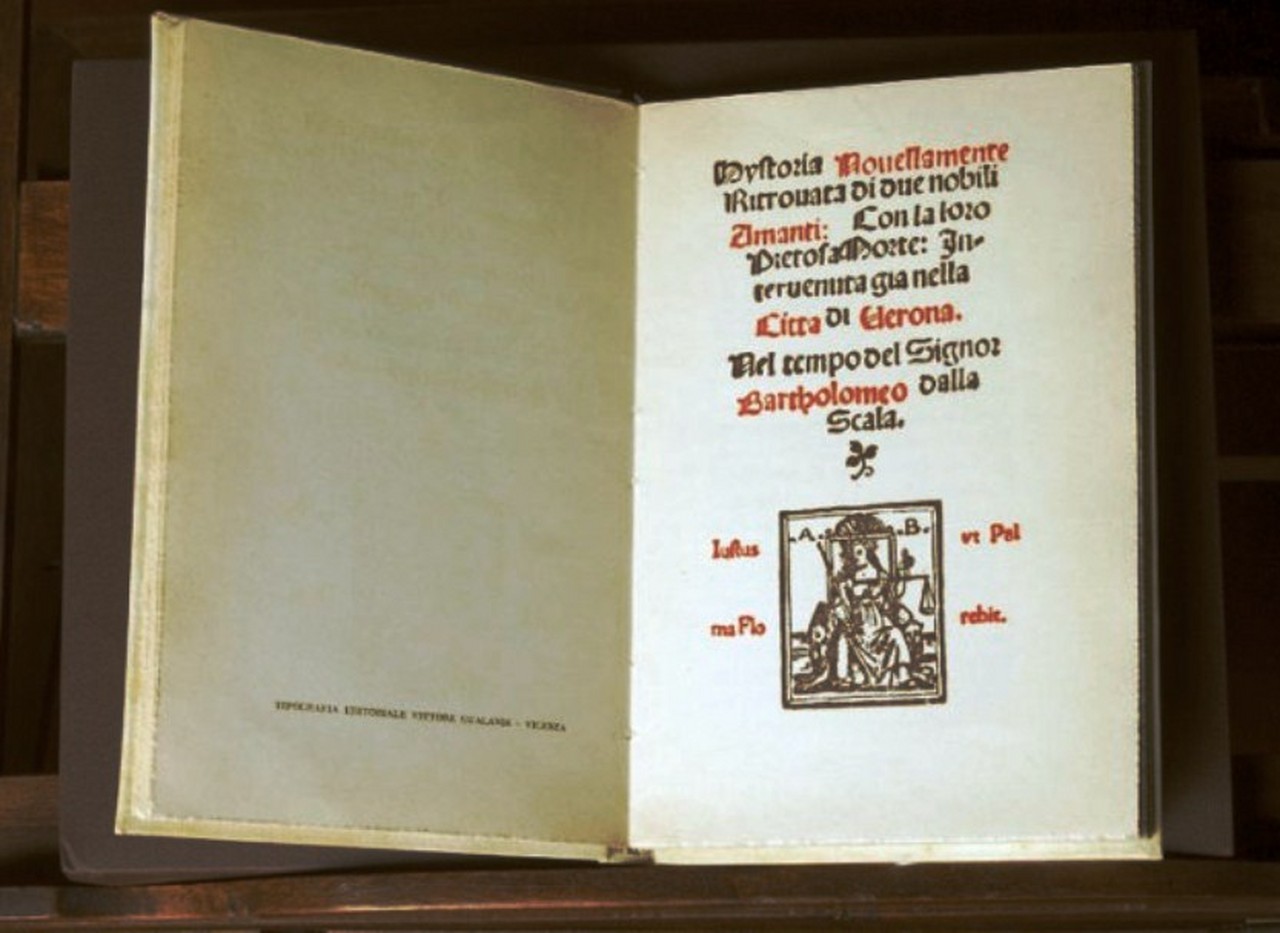 TIPOGRAFIA EDITORIALE VITTORE GUALANDI - VICENZA
Hystoria Nouellamente
Ritrouata di due nobili
Amanti: Con la loro
Pietosa Morte: In-
teruenuta gia nella
Citta di Uerona.
Nel tempo del Signor
Bartholomeo dalla
Scala.
.A. .B.
Iustus vt Pal
ma Flo rebit.